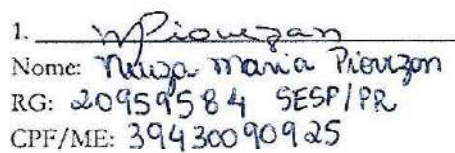 1. MPiovezan
Nome: Neuza Maria Piovezan
RG: 20959584 SESP/PR
CPF/ME: 39430090925